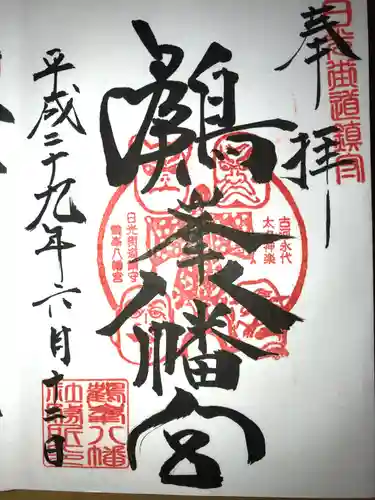 奉拝
日光街道鎮守
鶴峯八幡宮
古河永代
太々神楽
日光街道鎮守
鶴峯八幡宮
平成二十九年六月十二日
鶴峯八幡
社務所印